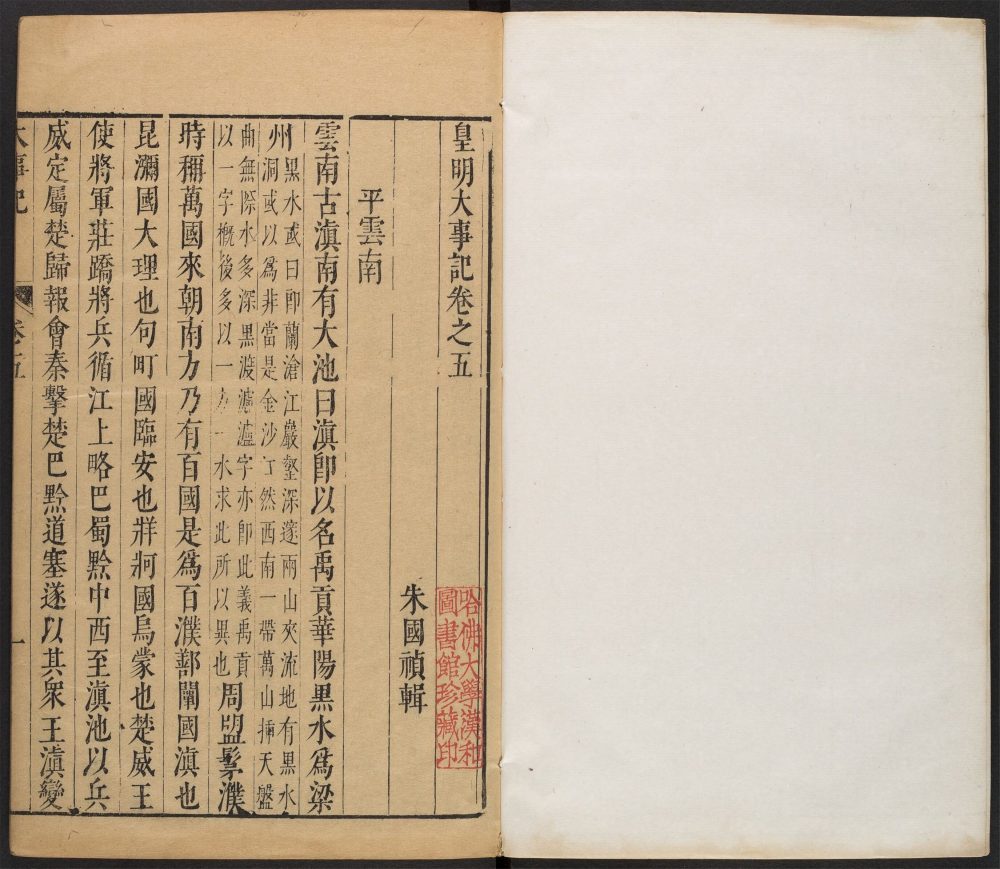 皇明大事記卷之五
朱國禎輯
哈佛大學漢和
圖書館珍藏印
平雲南
雲南古滇南有大池曰滇卽以名禹貢華陽黑水爲梁
州
黑水或曰卽蘭滄江巖壑深邃兩山夾流地有黑水
洞或以爲非當是金沙江然西南一帶萬山插天盤
曲無際水多深黑渡瀘瀘字亦卽此義禹貢
以一字槪後多以一方一水求此所以異也
周盟髳濮
時稱萬國來朝南方乃有百國是爲百濮鄯闡國滇也
昆瀰國大理也句町國臨安也牂牁國烏蒙也楚威王
使將軍莊蹻將兵循江上略巴蜀黔中西至滇池以兵
威定屬楚歸報會秦擊楚巴黔道塞遂以其衆王滇變
大事記
卷五
一